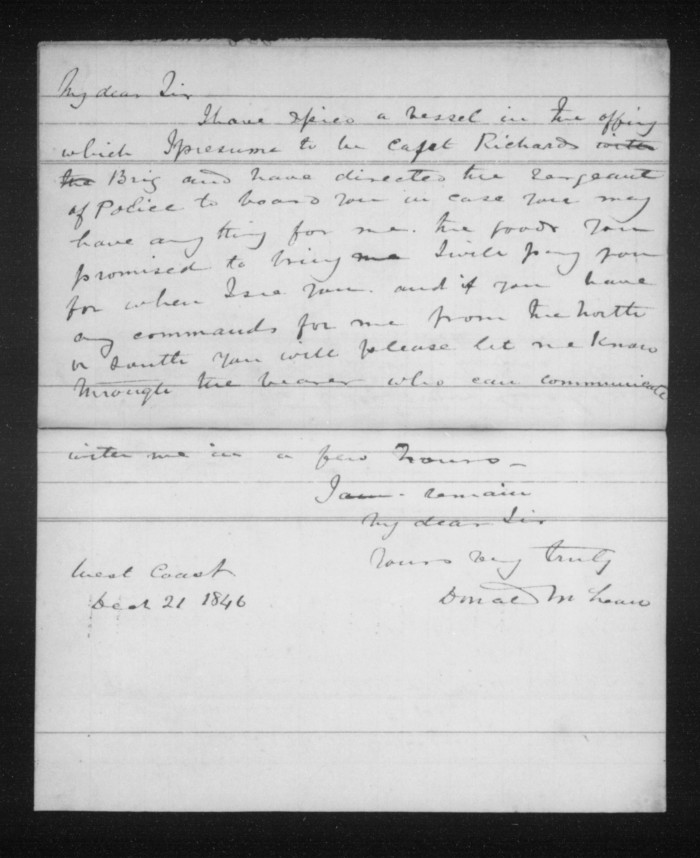 My dear Sir
I have spied a vessel in the offing
which I presume to be Capt Richards with
the Brig and have directed the Sergeant
of Police to board you in case you may
have any thing for me. the goods you
promised to bring me I will pay you
for when I see you. and if you have
any commands for me from the North
or South you will please let me know
through the bearer who can communicate
with me in a few hours_
I am. remain
My dear Sir
Yours very truly
Donald McLean
West Coast
Decr 21 1846